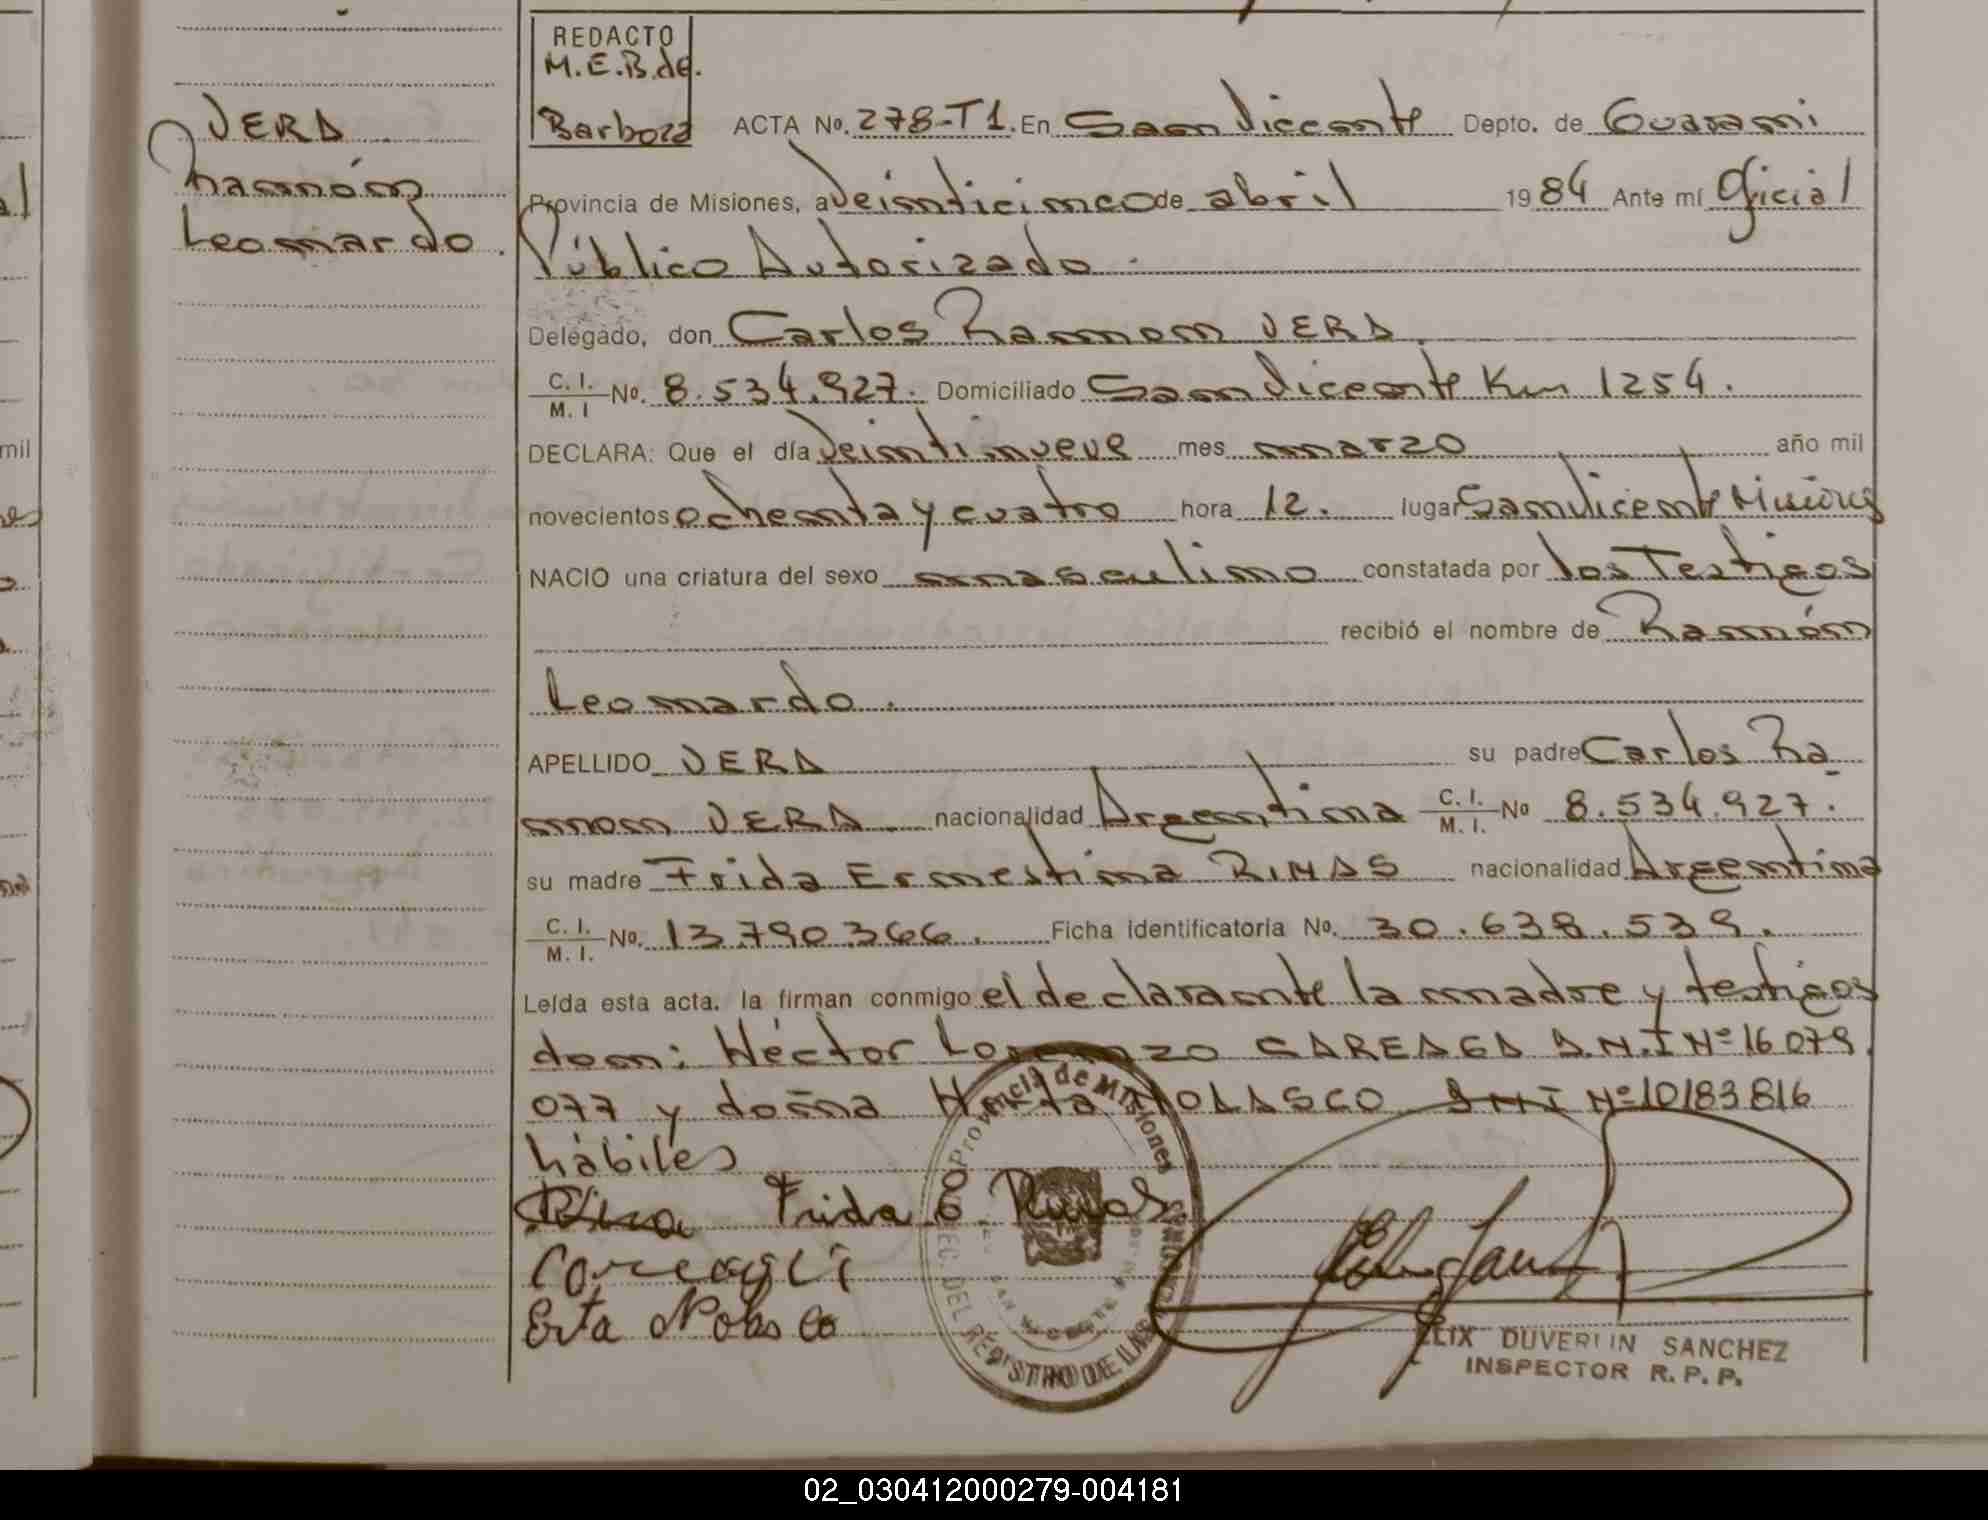 REDACTO
M.E.B.de.
Barboza
VERA
Ramón
Leonardo.
ACTA No. 278-T1. En San Vicente Depto. de Guaraní
Provincia de Misiones, a veinticinco de abril 1984 Ante mí Oficial
Público Autorizado.
Delegado, don Carlos Ramon VERA.
C. I. / M. I No. 8.534.927. Domiciliado San Vicente Km 1254.
DECLARA: Que el día veintinueve mes marzo año mil
novecientos ochenta y cuatro hora 12. lugar San Vicente Misiones
NACIO una criatura del sexo masculino constatada por los Testigos
recibió el nombre de Ramón
Leonardo.
APELLIDO VERA su padre Carlos Ra
mon VERA nacionalidad Argentina C. I. / M. I. No 8.534.927.
su madre Frida Ernestina RIMAS nacionalidad Argentina
C. I. / M. I. No. 13.790.366. Ficha identificatoria No. 30.638.539.
Leída esta acta, la firman conmigo el declarante la madre y testigos
don: Héctor Lorenzo CAREAGA D.N.I Nº 16 079
077 y doña NOLASCO DNI Nº 10183816
hábiles
Frida E.
Careaga
Erta Nolasco
Provincia de Misiones
DEL REGISTRO DE LAS PERSONAS
FELIX DUVERLIN SANCHEZ
INSPECTOR R. P. P.
mil
02_030412000279-004181